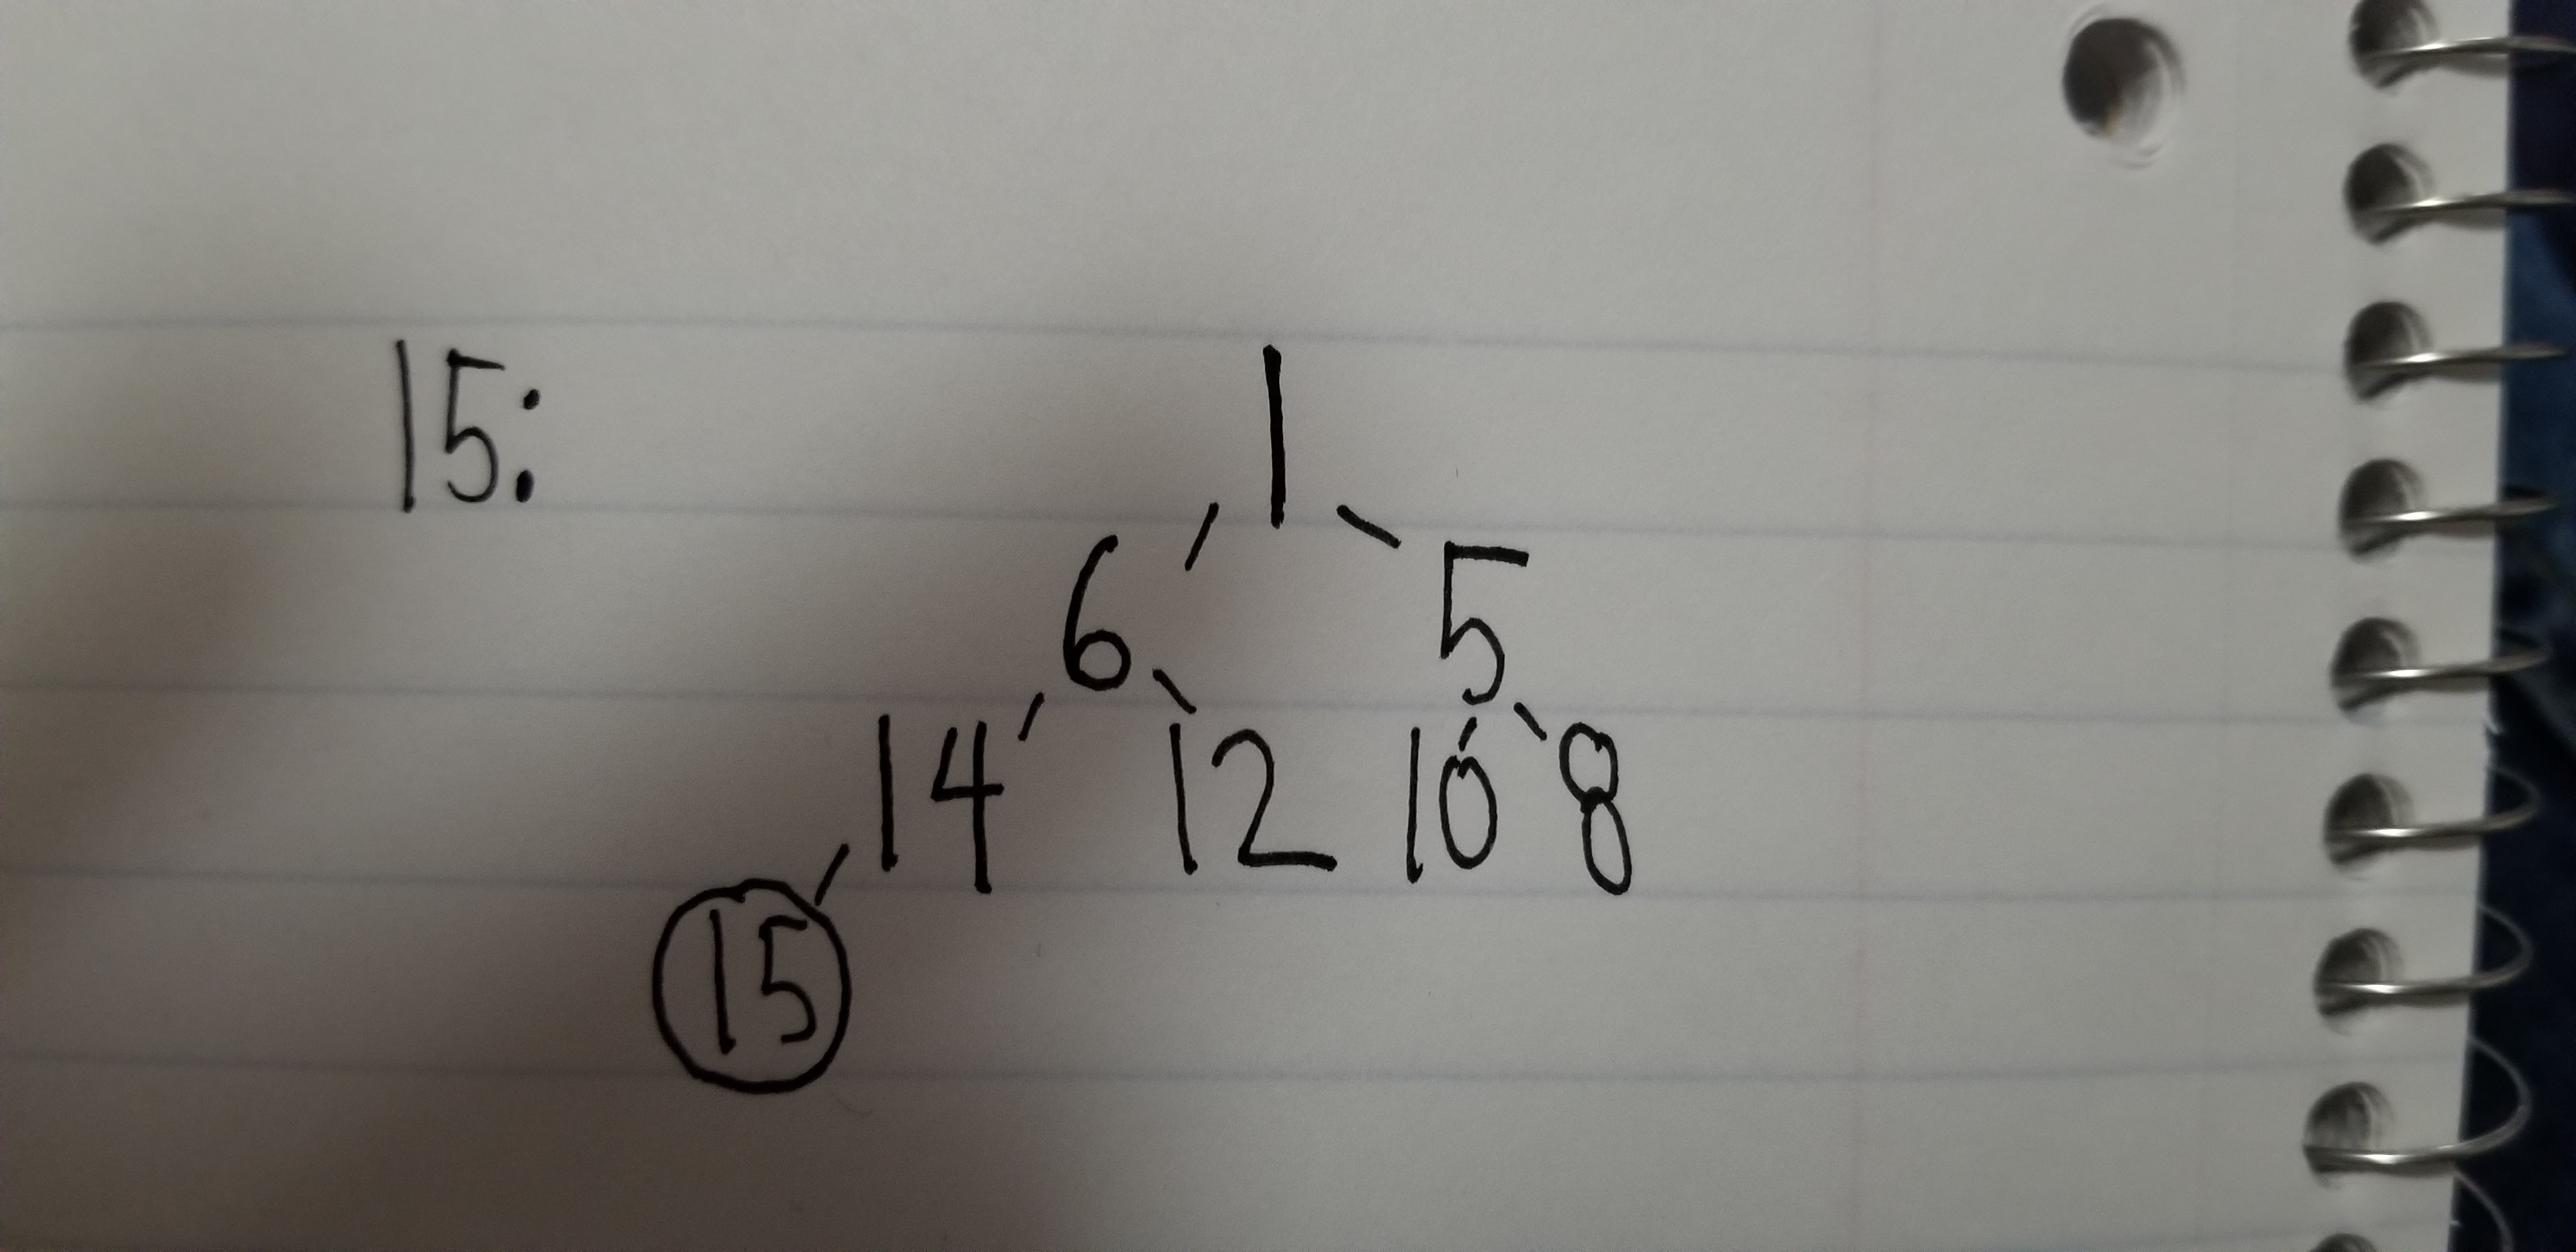 15: 1
6 5
14 12 10 8
15